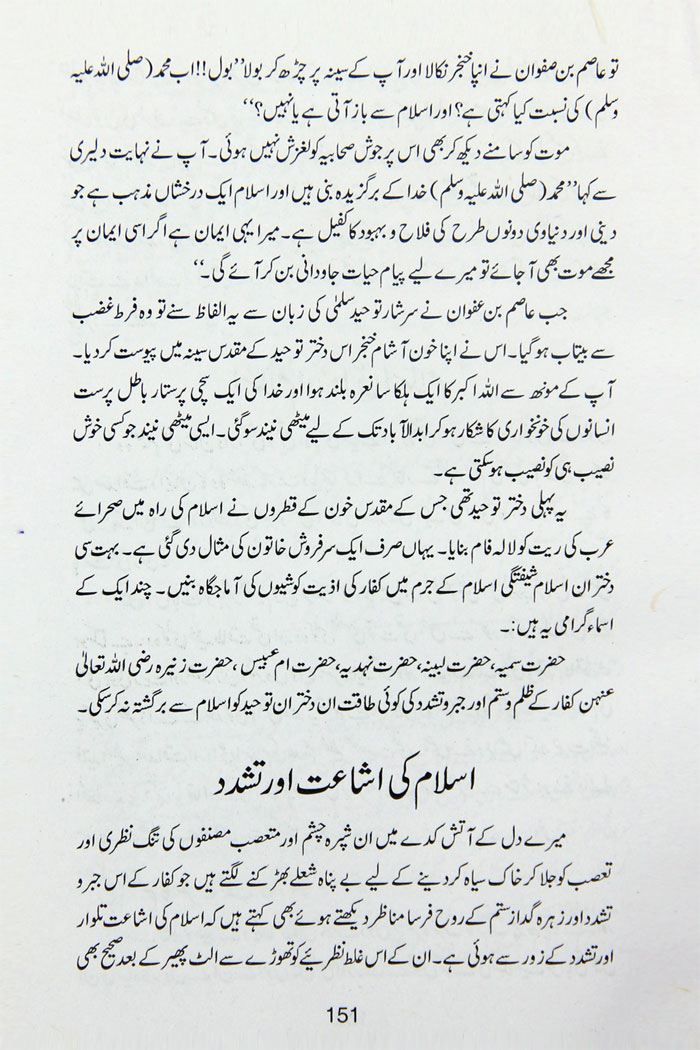 تو عاصم بن صفوان نے اپنا خنجر نکالا اور آپ کے سینہ پر چڑھ کر بولا ’’بول!! اب محمد (صلی اللہ علیہ
وسلم) کی نسبت کیا کہتی ہے؟ اور اسلام سے باز آتی ہے یا نہیں؟‘‘
موت کو سامنے دیکھ کر بھی اس پر جوش صحابیہ کو لغزش نہیں ہوئی۔ آپ نے نہایت دلیری
سے کہا ’’محمد (صلی اللہ علیہ وسلم) خدا کے برگزیدہ بنی ہیں اور اسلام ایک درخشاں مذہب ہے جو
دینی اور دنیاوی دونوں طرح کی فلاح و بہبود کا کفیل ہے۔ میرا یہی ایمان ہے اگر اسی ایمان پر
مجھے موت بھی آ جائے تو میرے لیے پیام حیات جاودانی بن کر آئے گی۔‘‘
جب عاصم بن عفوان نے سرشار توحید سلمٰی کی زبان سے یہ الفاظ سنے تو وہ فرط غضب
سے بیتاب ہو گیا۔ اس نے اپنا خون آشام خنجر اس دختر توحید کے مقدس سینہ میں پیوست کر دیا۔
آپ کے مونھ سے اللہ اکبر کا ایک ہلکا سا نعرہ بلند ہوا اور خدا کی ایک سچی پرستار باطل پرست
انسانوں کی خونخواری کا شکار ہو کر ابد الآباد تک کے لیے میٹھی نیند سو گئی۔ ایسی میٹھی نیند جو کسی خوش
نصیب ہی کو نصیب ہو سکتی ہے۔
یہ پہلی دختر توحید تھی جس کے مقدس خون کے قطروں نے اسلام کی راہ میں صحرائے
عرب کی ریت کو لالہ فام بنایا۔ یہاں صرف ایک سرفروش خاتون کی مثال دی گئی ہے۔ بہت سی
دختران اسلام شیفتگی اسلام کے جرم میں کفار کی اذیت کوشیوں کی آماجگاہ بنیں۔ چند ایک کے
اسماء گرامی یہ ہیں:۔
حضرت سمیہ، حضرت لبینہ، حضرت نہدیہ، حضرت ام عبیس، حضرت زنیرہ رضی اللہ تعالیٰ
عنہن کفار کے ظلم و ستم اور جبر و تشدد کی کوئی طاقت ان دختران توحید کو اسلام سے برگشتہ نہ کر سکی۔
اسلام کی اشاعت اور تشدد
میرے دل کے آتش کدے میں ان شپرہ چشم اور متعصب مصنفوں کی تنگ نظری اور
تعصب کو جلا کر خاک سیاہ کر دینے کے لیے بے پناہ شعلے بھڑکنے لگتے ہیں جو کفار کے اس جبر و
تشدد اور زہرہ گداز ستم کے روح فرسا مناظر دیکھتے ہوئے بھی کہتے ہیں کہ اسلام کی اشاعت تلوار
اور تشدد کے زور سے ہوئی ہے۔ ان کے اس غلط نظریئے کو تھوڑے سے الٹ پھیر کے بعد صحیح بھی
151